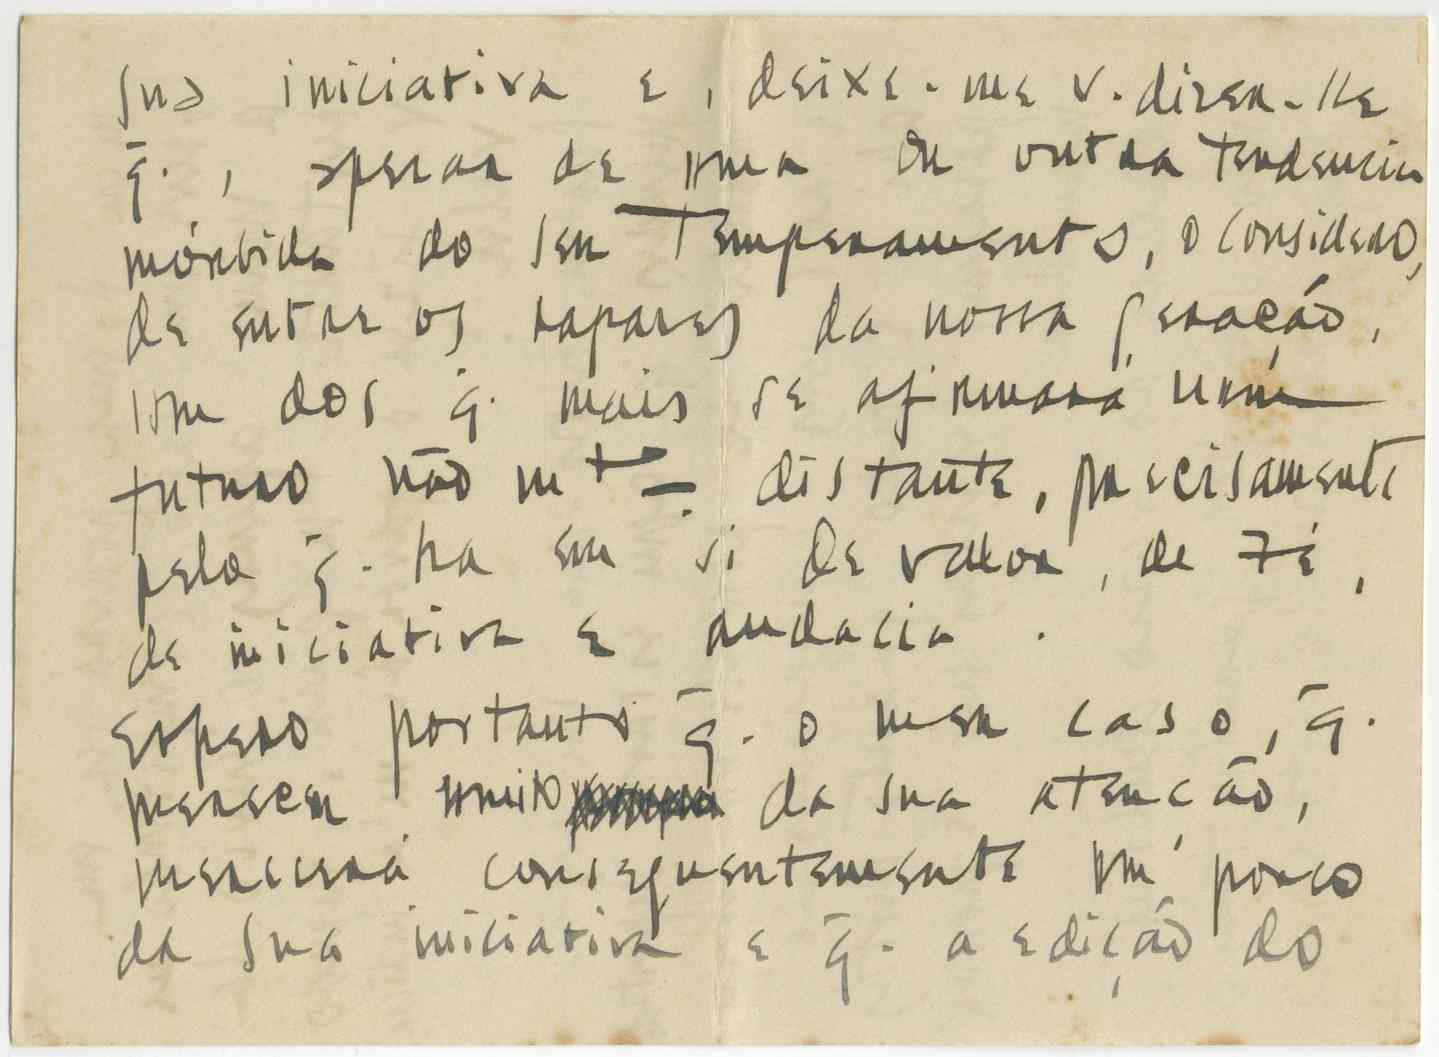 sua iniciativa e, deixe-me v. dizer-lhe
q̄., apezar de uma ou outra tendencia
mórbida do seu temperamento, o considero,
de entre os rapazes da nossa geração,
um dos q̄. mais se afirmará núm
futuro não mto distante, precisamente
pelo q̄. ha em si de valor, de Fé,
de iniciativa e audacia.
Espero portanto q̄. o meu caso, q̄.
mereceu muito da sua atenção,
merecerá consequentemente um pouco
da sua iniciativa e q̄. a edição do